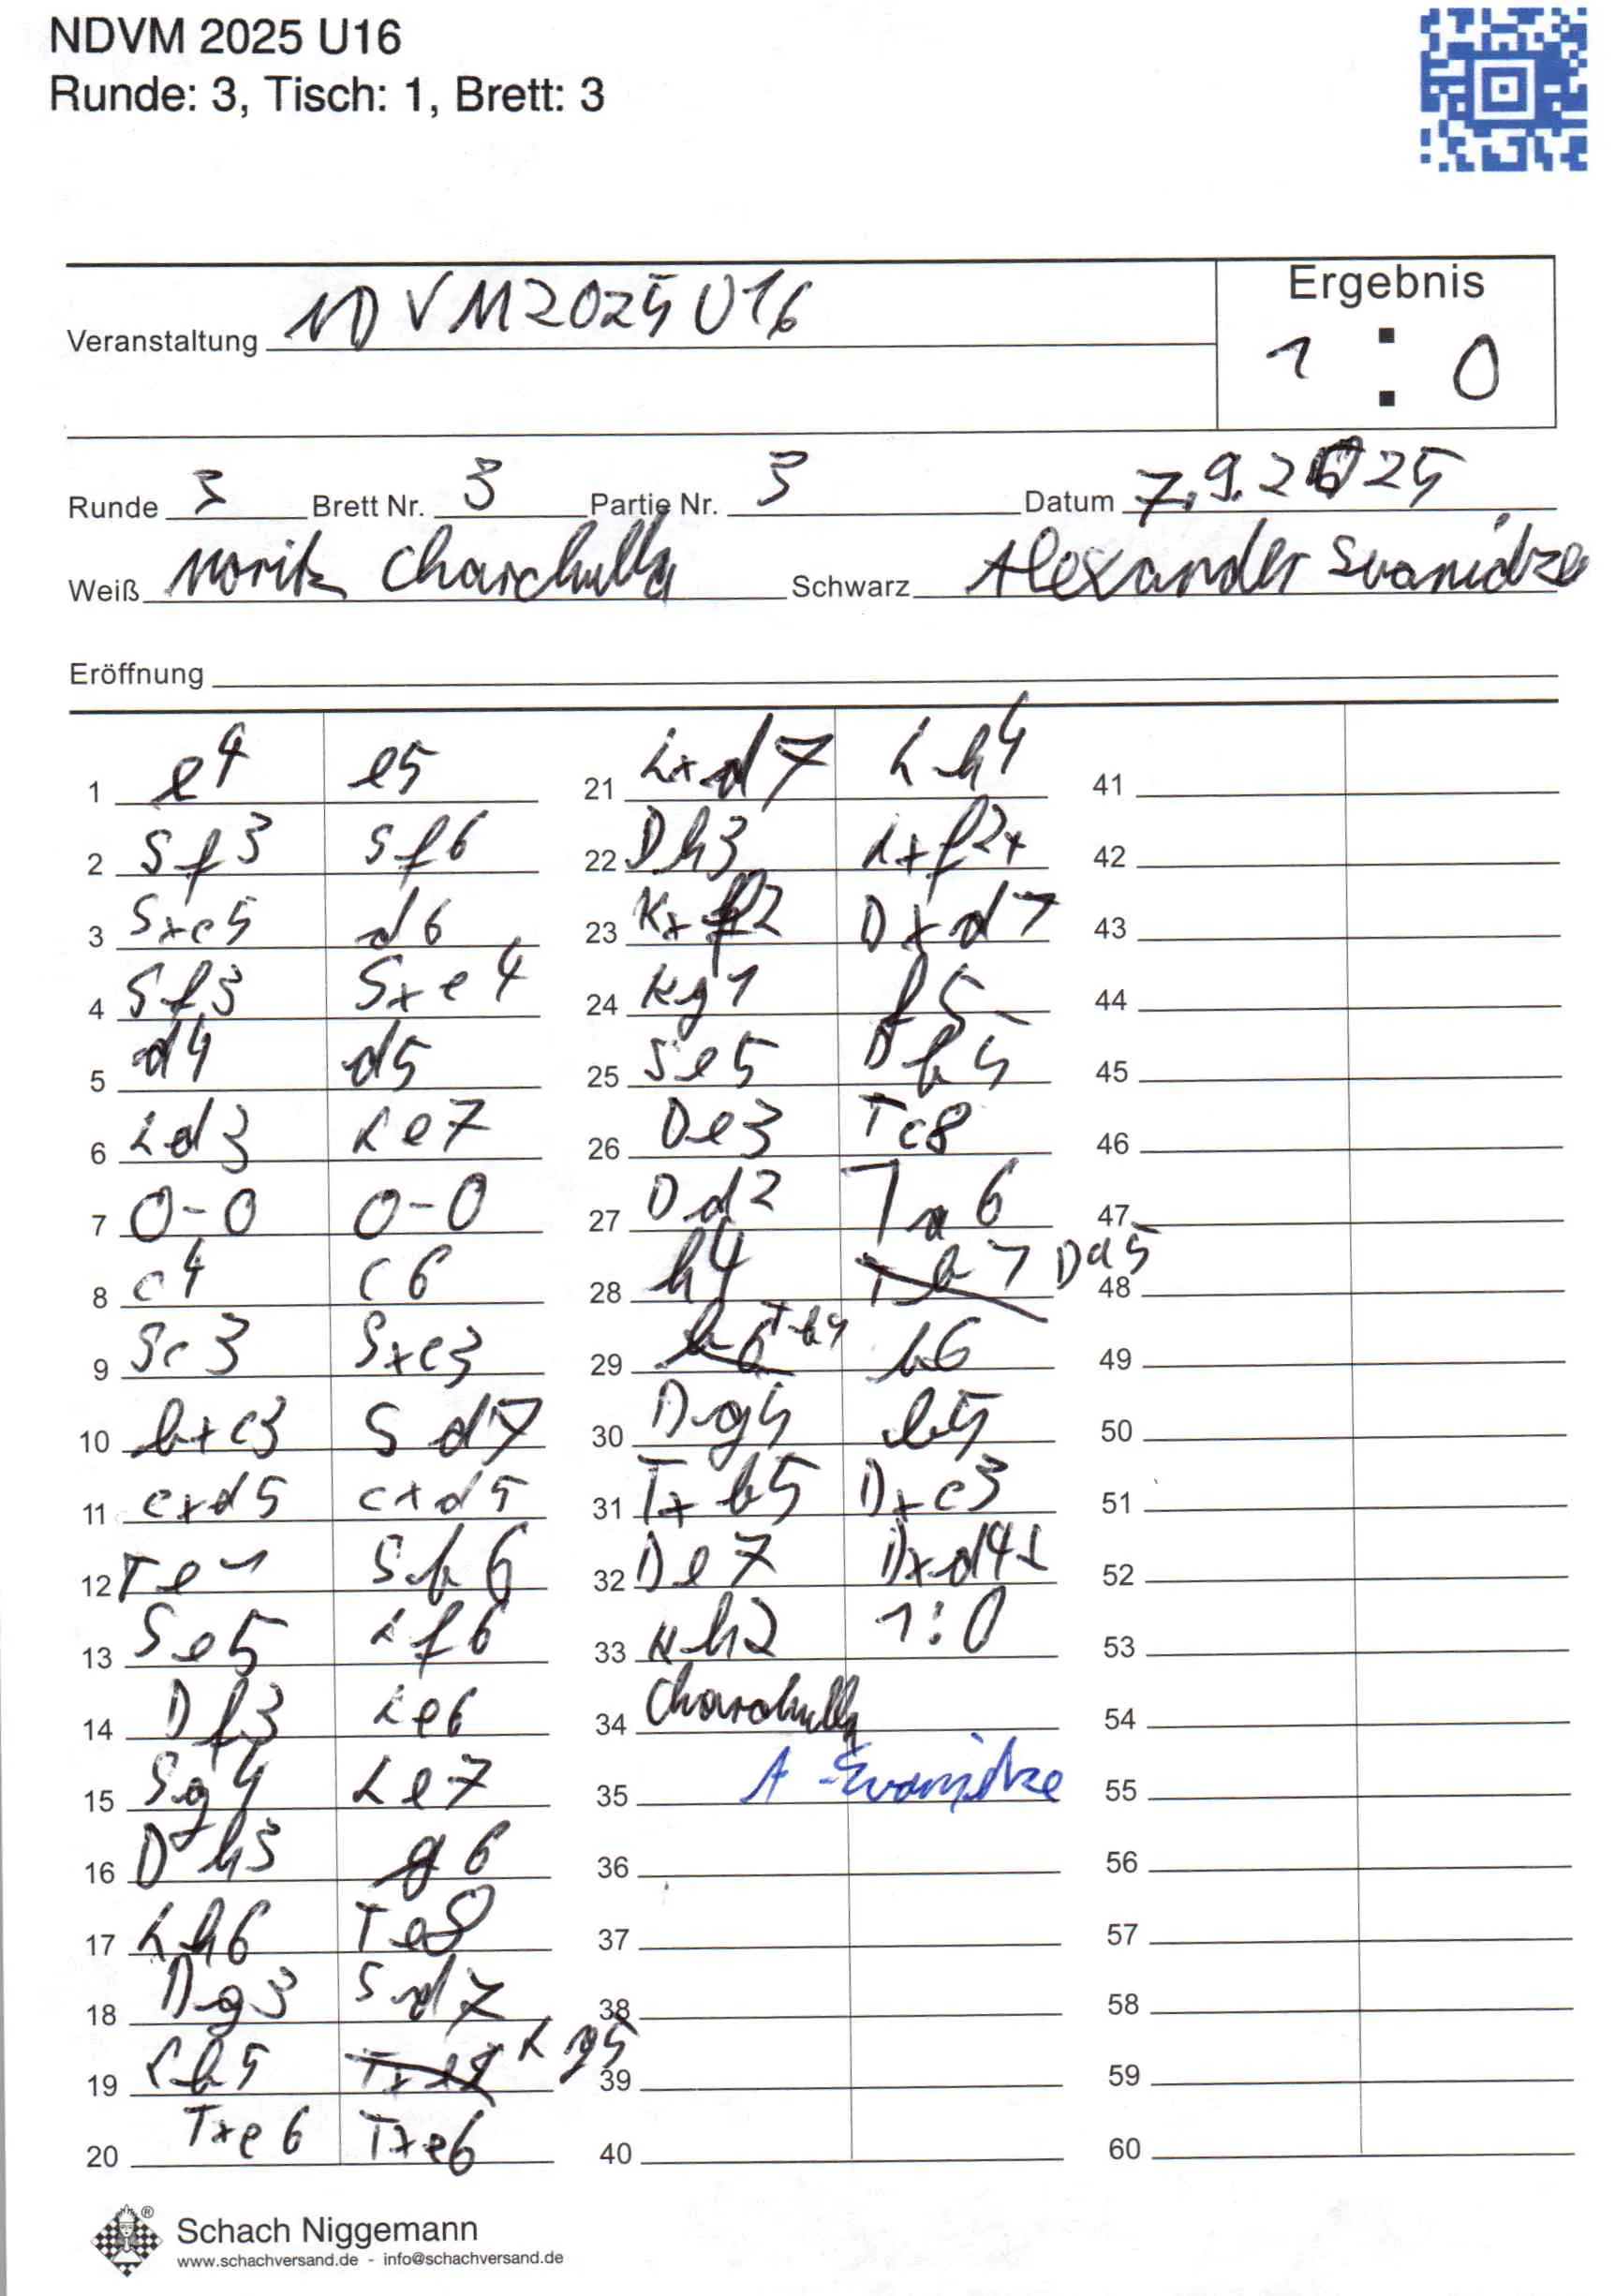 NDVM 2025 U16
Runde: 3, Tisch: 1, Brett: 3
Veranstaltung NDVM2025 U16
Ergebnis
1 : 0
Runde 3 Brett Nr. 3 Partie Nr. 3 Datum 7.9.2025
Weiß Moritz Charchulla Schwarz Alexander Svanidze
Eröffnung
1 e4 e5
2 Sf3 Sf6
3 Sxe5 d6
4 Sf3 Sxe4
5 d4 d5
6 Ld3 Le7
7 0-0 0-0
8 c4 c6
9 Sc3 Sxc3
10 bxc3 Sd7
11 cxd5 cxd5
12 Te1 Sb6
13 Se5 Lf6
14 Df3 Le6
15 Sg4 Le7
16 Dh3 g6
17 Lh6 Te8
18 Dg3 Sd7
19 Lb5 Lg5
20 Txe6 Txe6
21 Lxd7 Lh4
22 Dh3 Lxf2+
23 Kxf2 Dxd7
24 Kg1 f5
25 Se5 Db5
26 De3 Tc8
27 Dd2 Ta6
28 h4 Tb7 Da5
29 Tb1 b6
30 Dg5 b5
31 Txb5 Dxc3
32 De7 Dxd4+
33 Kh2 1:0
34 Charchulla
35 A Svanidze
36
37
38
39
40
41
42
43
44
45
46
47
48
49
50
51
52
53
54
55
56
57
58
59
60
Schach Niggemann
www.schachversand.de - info@schachversand.de